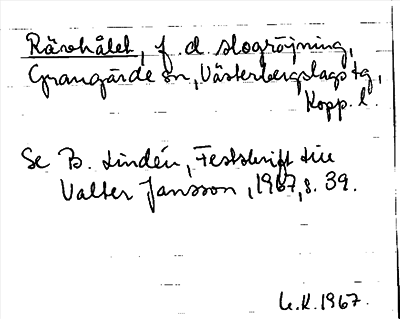 Rävhålet, f.d. slogröjning,
Grangärde sn, Västerbergslags tg,
Kopp. l.
Se B. Lindén, Festskrift till
Valter Jansson, 1967, s. 39.
U.K. 1967.